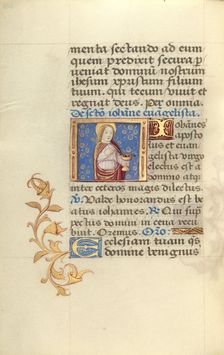 menta sectando ad eum
quem predixit secura p
veniat dominū nostrum
ihesum xp̄istum filium
tuum. qui tecum vivit et
regnat deus. Per omnia.
De scto iohāne euāgelista.
Iohānes
aposto
lus et euan
gelista virgo
electus est a
domino atqȝ
inter ceteros magis dilectus.
V. Valde honorandus est be
atus iohannes. R. Qui sup̄
pectus domini in cena recu
buit. Oremus. Oro:
Ecclesiam tuam qs
domine benignus